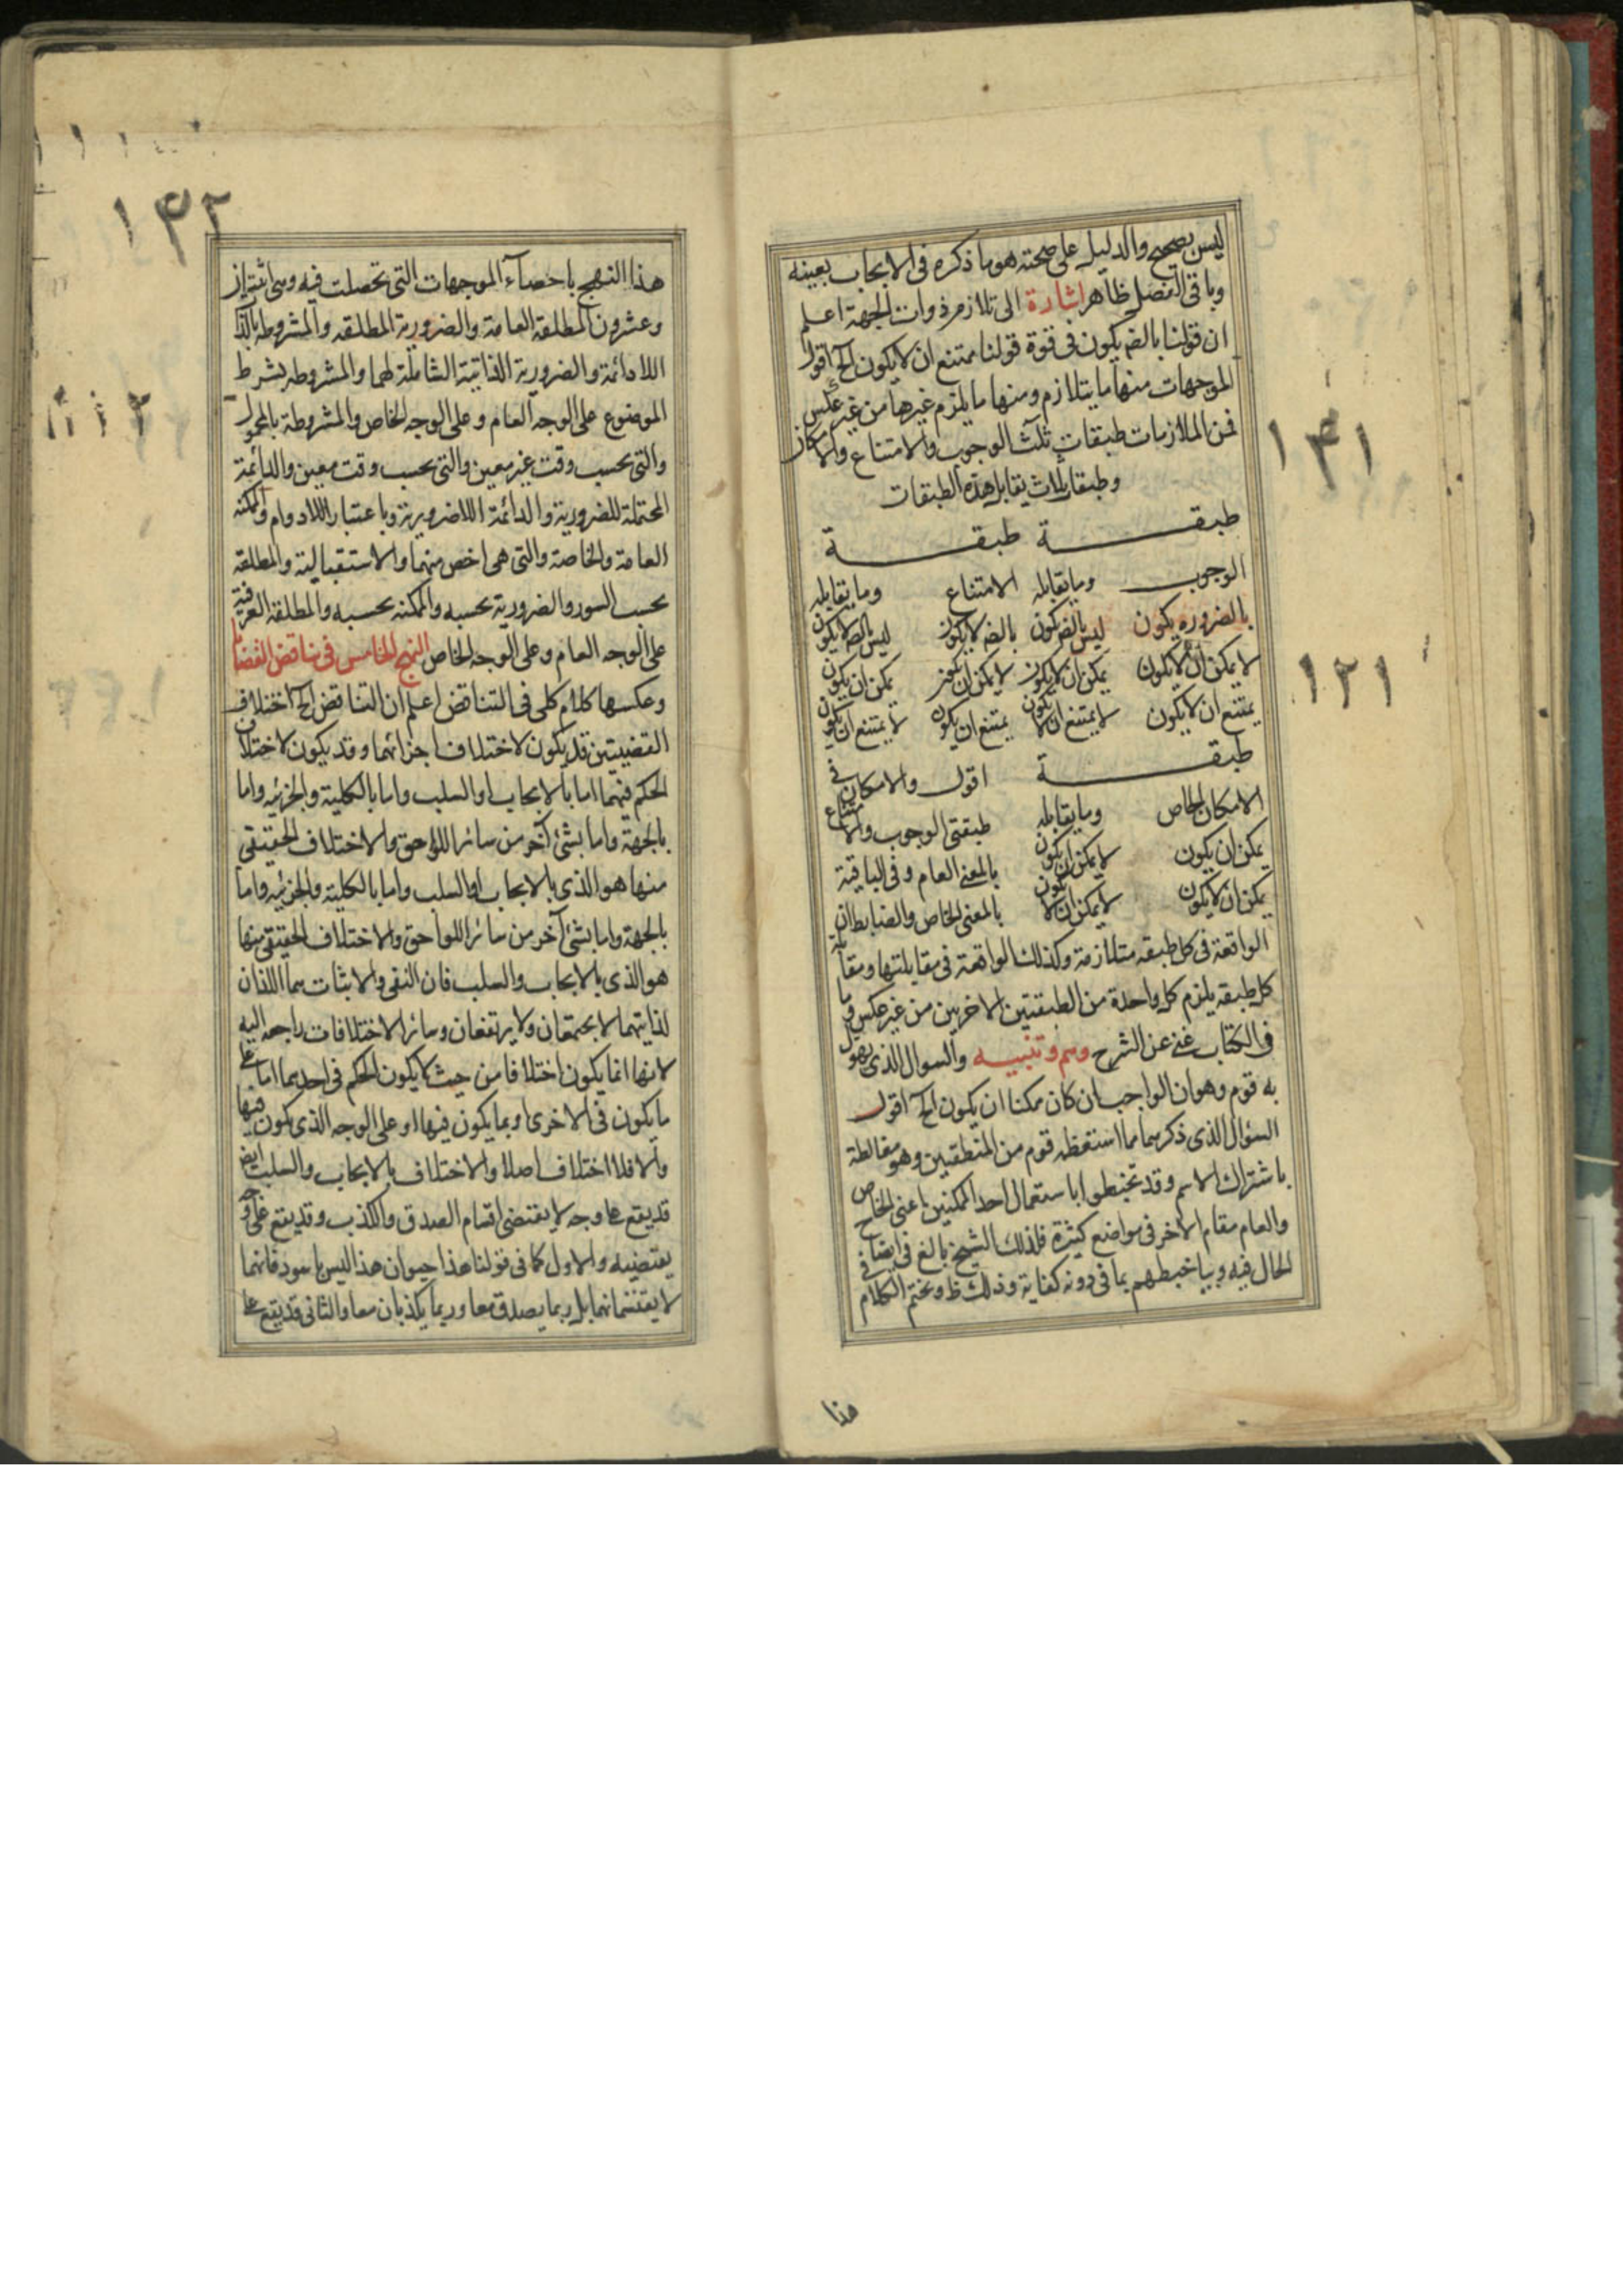 ليس بصحيح والدليل على صحته هو ما ذكره فى الايجاب بعينه
وباقى الفصل ظاهر اشارة الى تلازم ذوات الجهة اعلم
ان قولنا بالضر يكون فى قوة قولنا ممتنع ان لا يكون الخ اقول
الموجهات منها ما يتلازم ومنها ما يلزم غيرها من غير عكس
فمن الملازمات طبقات ثلث الوجوب والامتناع والامكان
وطبقات ثلاث يقابل هذه الطبقات
طبقة طبقة
الوجوب وما يقابله الامتناع وما يقابله
بالضروره يكون ليس بالضر يكون بالضر لا يكون ليس بالضر لا يكون
لا يمكن ان لا يكون يمكن ان لا يكون لا يمكن ان يكون يمكن ان يكون
يمتنع ان لا يكون لا يمتنع ان لا يكون يمتنع ان يكون لا يمتنع ان يكون
طبقة اقول والامكان فى
الامكان الخاص وما يقابله طبقتى الوجوب والامتناع
يمكن ان يكون لا يمكن ان يكون بالمعنى العام وفى الباقية
يمكن ان لا يكون لا يمكن ان لا يكون بالمعنى الخاص والضابط ان
الواقعة فى كل طبقه متلازمة وكذلك الواقعة فى مقابلتها ومقابلة
كل طبقه يلزم كل واحدة من الطبقتين الاخريين من غير عكس وما
فى الكتاب غنى عن الشرح وهم وتنبيه والسوال الذى يهول
به قوم وهو ان الواجب ان كان ممكنا ان يكون الخ اقول
السؤال الذى ذكر مما استعظه قوم من المنطقيين وهو مغالطة
باشتراك الاسم وقد تخبطوا باستعمال احد الممكنين اعنى الخاص
والعام مقام الاخر فى مواضع كثيرة فلذلك الشيخ بالغ فى ايضاح
الحال فيه وبيان خبطهم بما فى دونه كفاية وذلك ظ ونختم الكلام فى
هذا
١٤١
١٢١
١٤٢
هذا النهج باحصاء الموجهات التى تحصلت فيه وهى اثنتان
وعشرون المطلقة العامة والضرورية المطلقه والمشروطه بالذات
اللادائمة والضرورية الذاتية الشاملة لهما والمشروطه بشرط
الموضوع على الوجه العام وعلى الوجه الخاص والمشروطة بالمحمول
والتى بحسب وقت غير معين والتى بحسب وقت معين والدائمة
المحتملة للضرورية والدائمة اللاضرورية وباعتبار اللادوام والممكنه
العامة والخاصة والتى هى اخص منهما والاستقبالية والمطلقه
بحسب السور والضرورية بحسبه والممكنه بحسبه والمطلقة العرفية
على الوجه العام وعلى الوجه الخاص النهج الخامس فى تناقض القضايا
وعكسها كلام كلى فى التناقض اعلم ان التناقض الخ اختلاف
القضيتين قد يكون لاختلاف اجزائهما وقد يكون لاختلاف
الحكم فيهما اما بالايجاب او السلب واما بالكلية والجزئيه واما
بالجهة واما بشئ آخر من سائر اللواحق والاختلاف الحقيقى
منها هو الذى بالايجاب او السلب واما بالكلية والجزئيه واما
بالجهة واما بشئ آخر من سائر اللواحق والاختلاف الحقيقى منها
هو الذى بالايجاب والسلب فان النفى والاثبات هما اللذان
لذاتيهما لا يجتمعان ولا يرتفعان وسائر الاختلافات راجعه اليه
لانها انما يكون اختلافا من حيث لا يكون الحكم فى احدهما اما على
ما يكون فى الاخرى او بما يكون فيها او على الوجه الذى يكون فيها
والا فلا اختلاف اصلا والاختلاف بالايجاب والسلب ايض
قد يقع على وجه لا يقتضى اقتسام الصدق والكذب وقد يقع على وجه
يقتضيه والاول كما فى قولنا هذا حيوان هذا ليس باسود فانهما
لا يقتسمانهما بل ربما يصدق معا وربما يكذبان معا والثانى قد يقع على